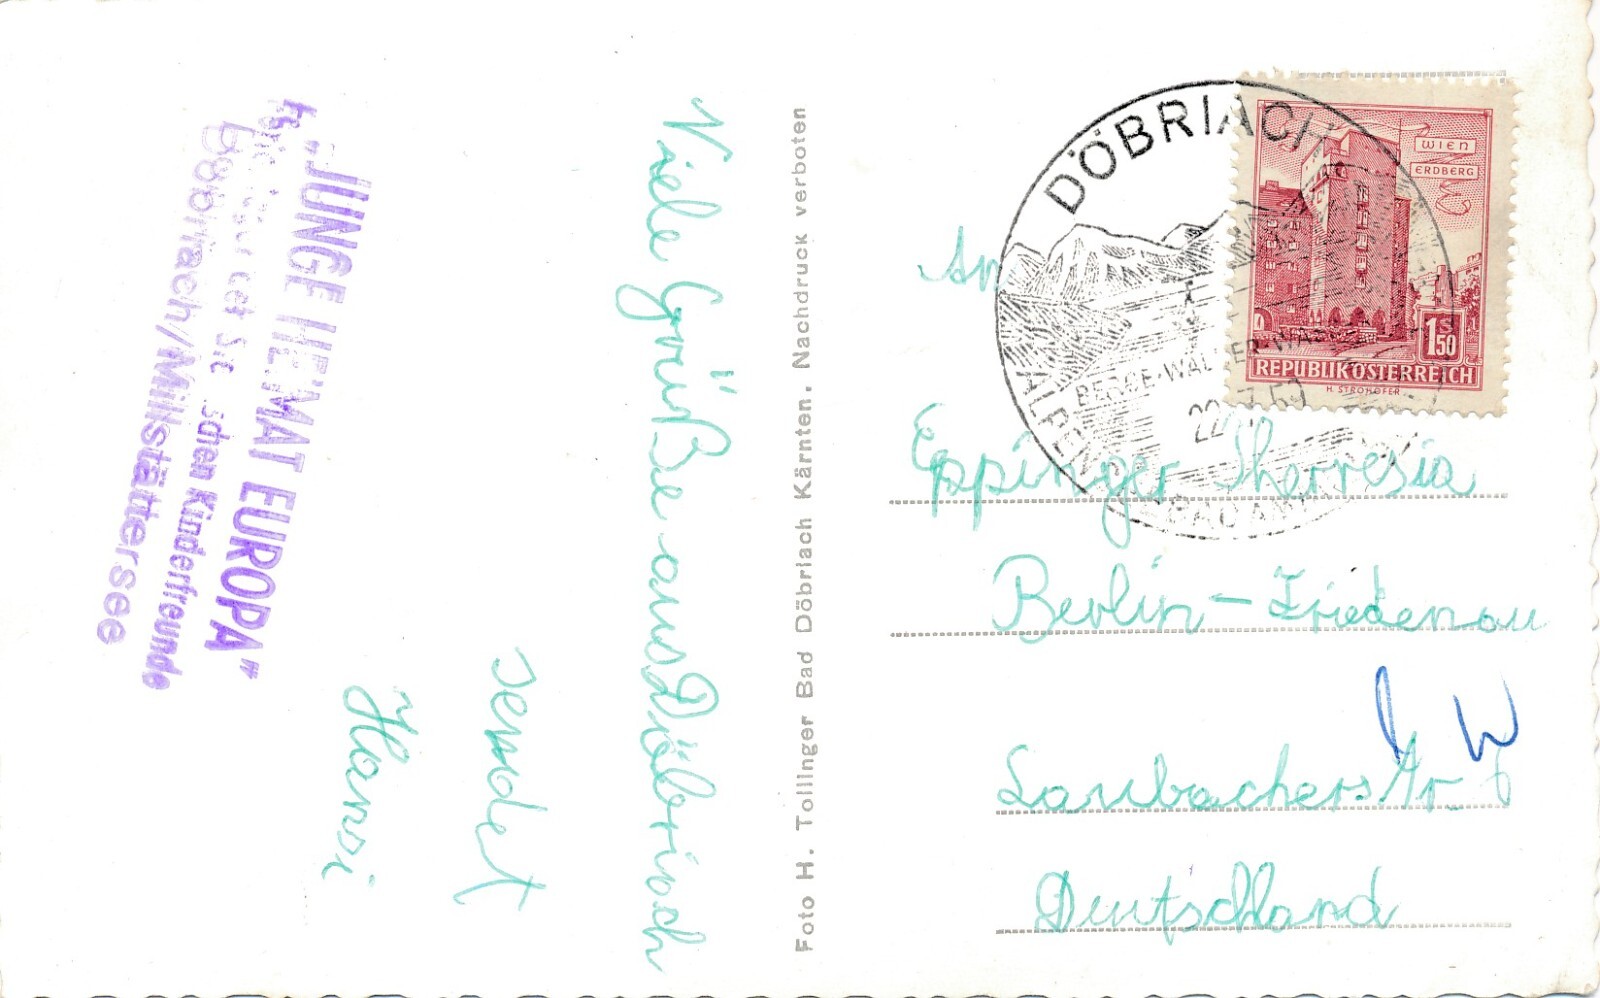 "JUNGE HEIMAT EUROPA"
Kinderfreunde
Döbriach/Millstättersee
Viele Grüße aus Döbriach
sendet
Hansi
Foto H. Tollinger Bad Döbriach Kärnten. Nachdruck verboten
DÖBRIACH
BERGE-WÄLDER-WASSER
22
WIEN
ERDBERG
1 S 50
REPUBLIK ÖSTERREICH
H. STROHOFER
An
Eppinger Therresia
Berlin - Friedenau
Laubacherstr. 6
W
Deutschland